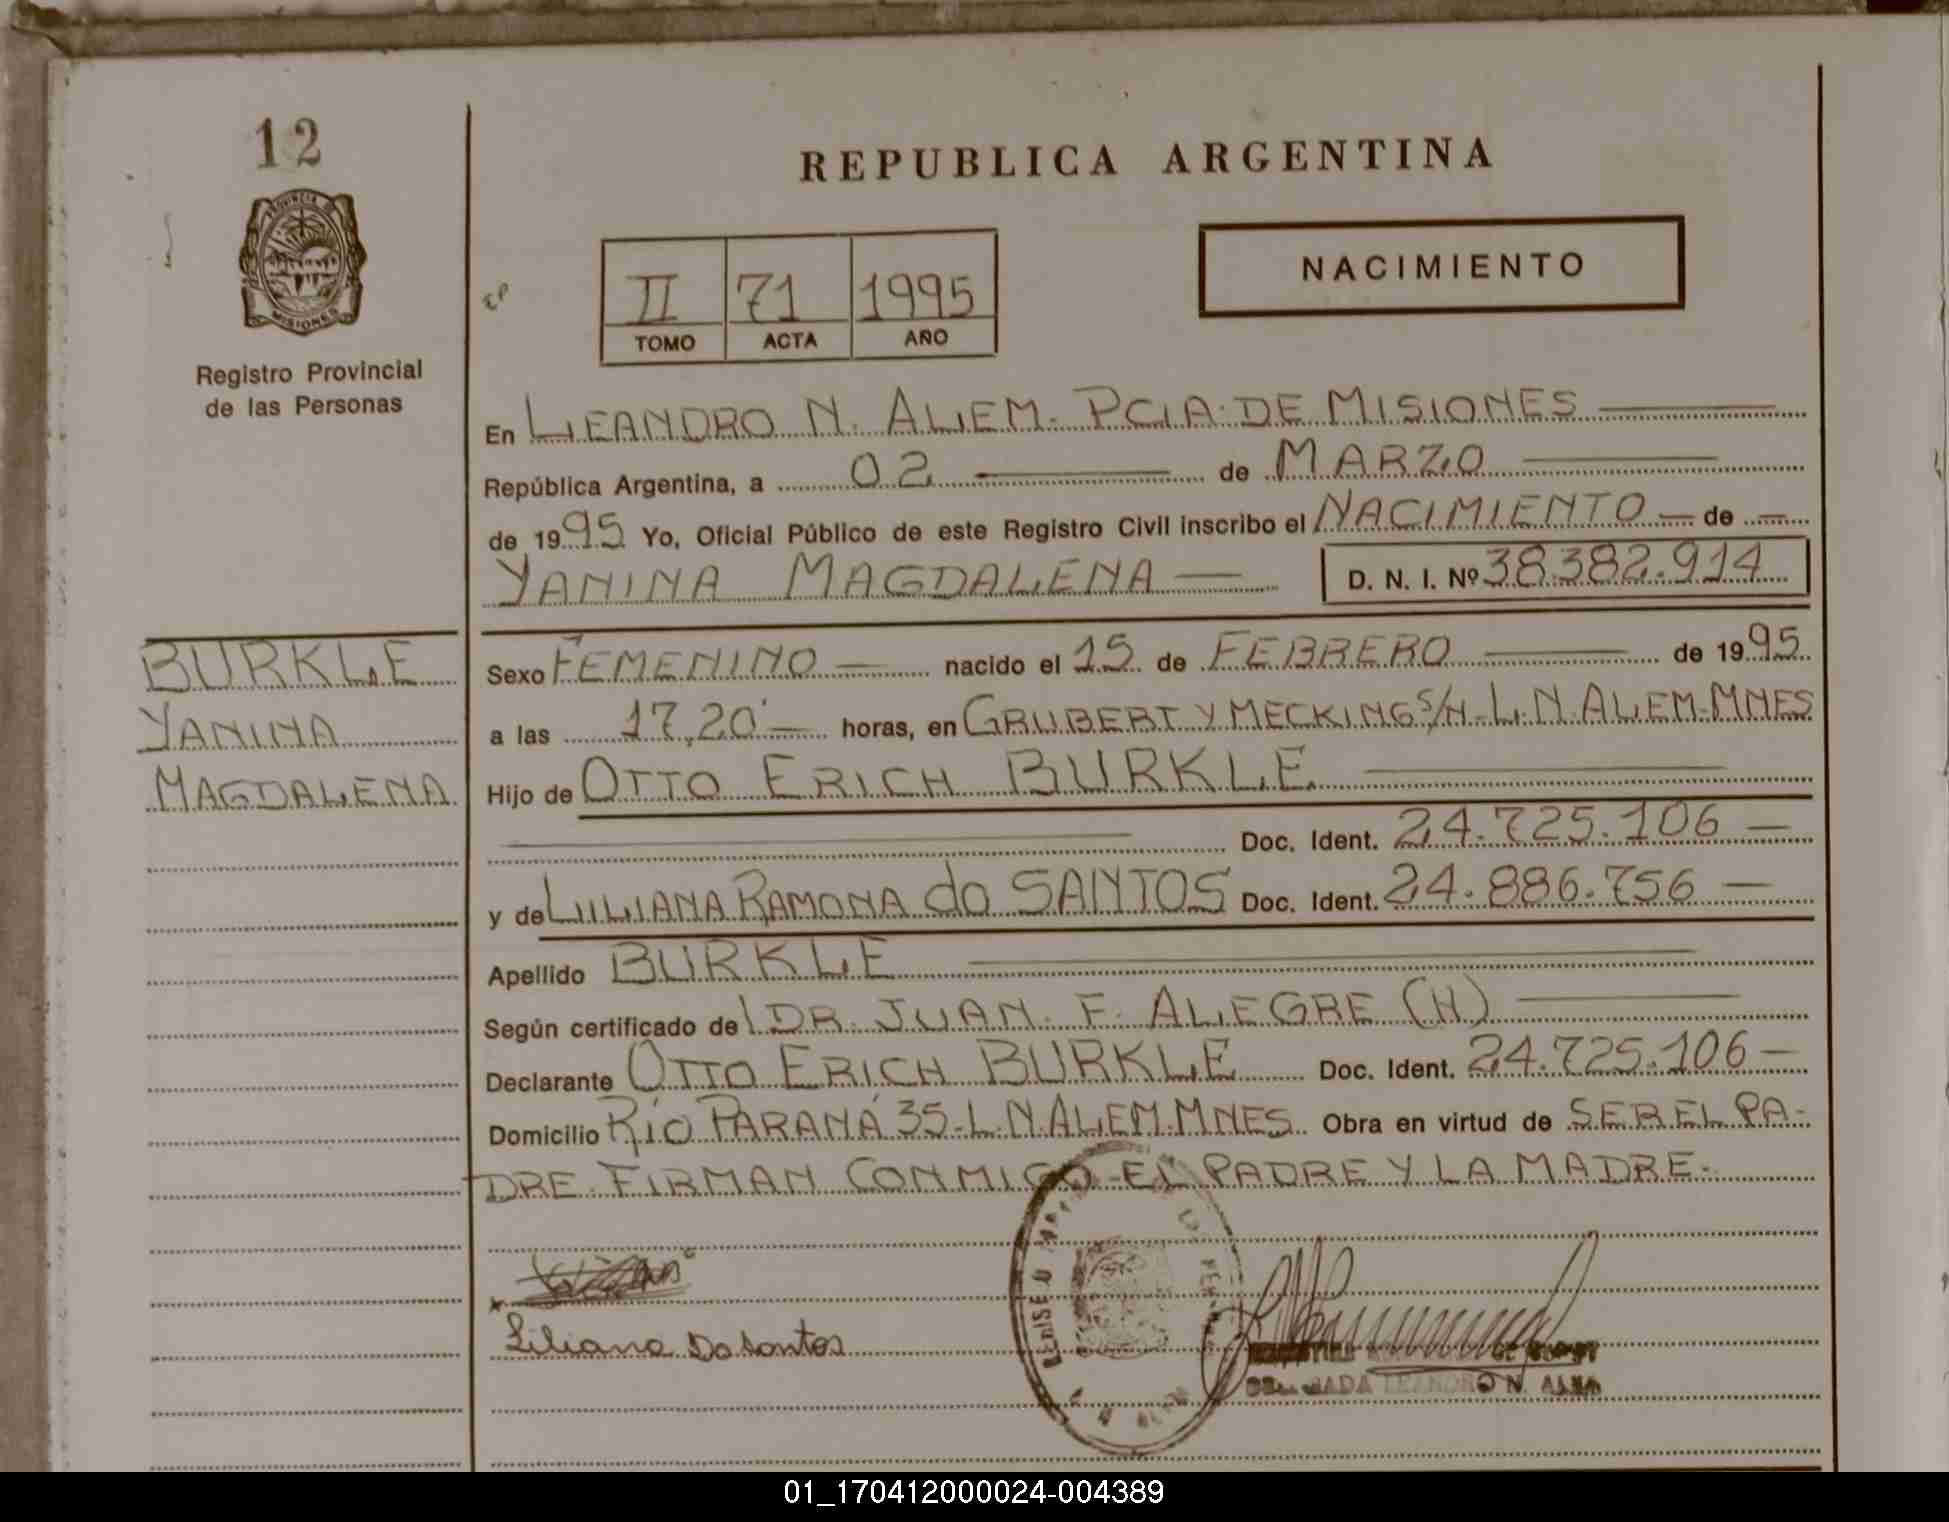 12
REPUBLICA ARGENTINA
PROVINCIA DE
MISIONES
Registro Provincial
de las Personas
II 71 1995
TOMO ACTA AÑO
NACIMIENTO
En LEANDRO N. ALEM. PCIA. DE MISIONES
República Argentina, a 02 de MARZO
de 1995 Yo, Oficial Público de este Registro Civil inscribo el NACIMIENTO de
YANINA MAGDALENA D. N. I. Nº 38.382.914
BURKLE
YANINA
MAGDALENA
Sexo FEMENINO nacido el 15 de FEBRERO de 1995
a las 17,20' horas, en GRUBERT Y MECKING S/N-L.N.ALEM-MNES
Hijo de OTTO ERICH BURKLE
Doc. Ident. 24.725.106
y de LILIANA RAMONA do SANTOS Doc. Ident. 24.886.756
Apellido BURKLE
Según certificado del DR. JUAN F. ALEGRE (H)
Declarante OTTO ERICH BURKLE Doc. Ident. 24.725.106
Domicilio RÍO PARANÁ 35-L.N.ALEM.MNES. Obra en virtud de SER EL PA-
DRE. FIRMAN CONMIGO EL PADRE Y LA MADRE.
Liliana Do Santos
LEANDRO N. ALEM
01_170412000024-004389